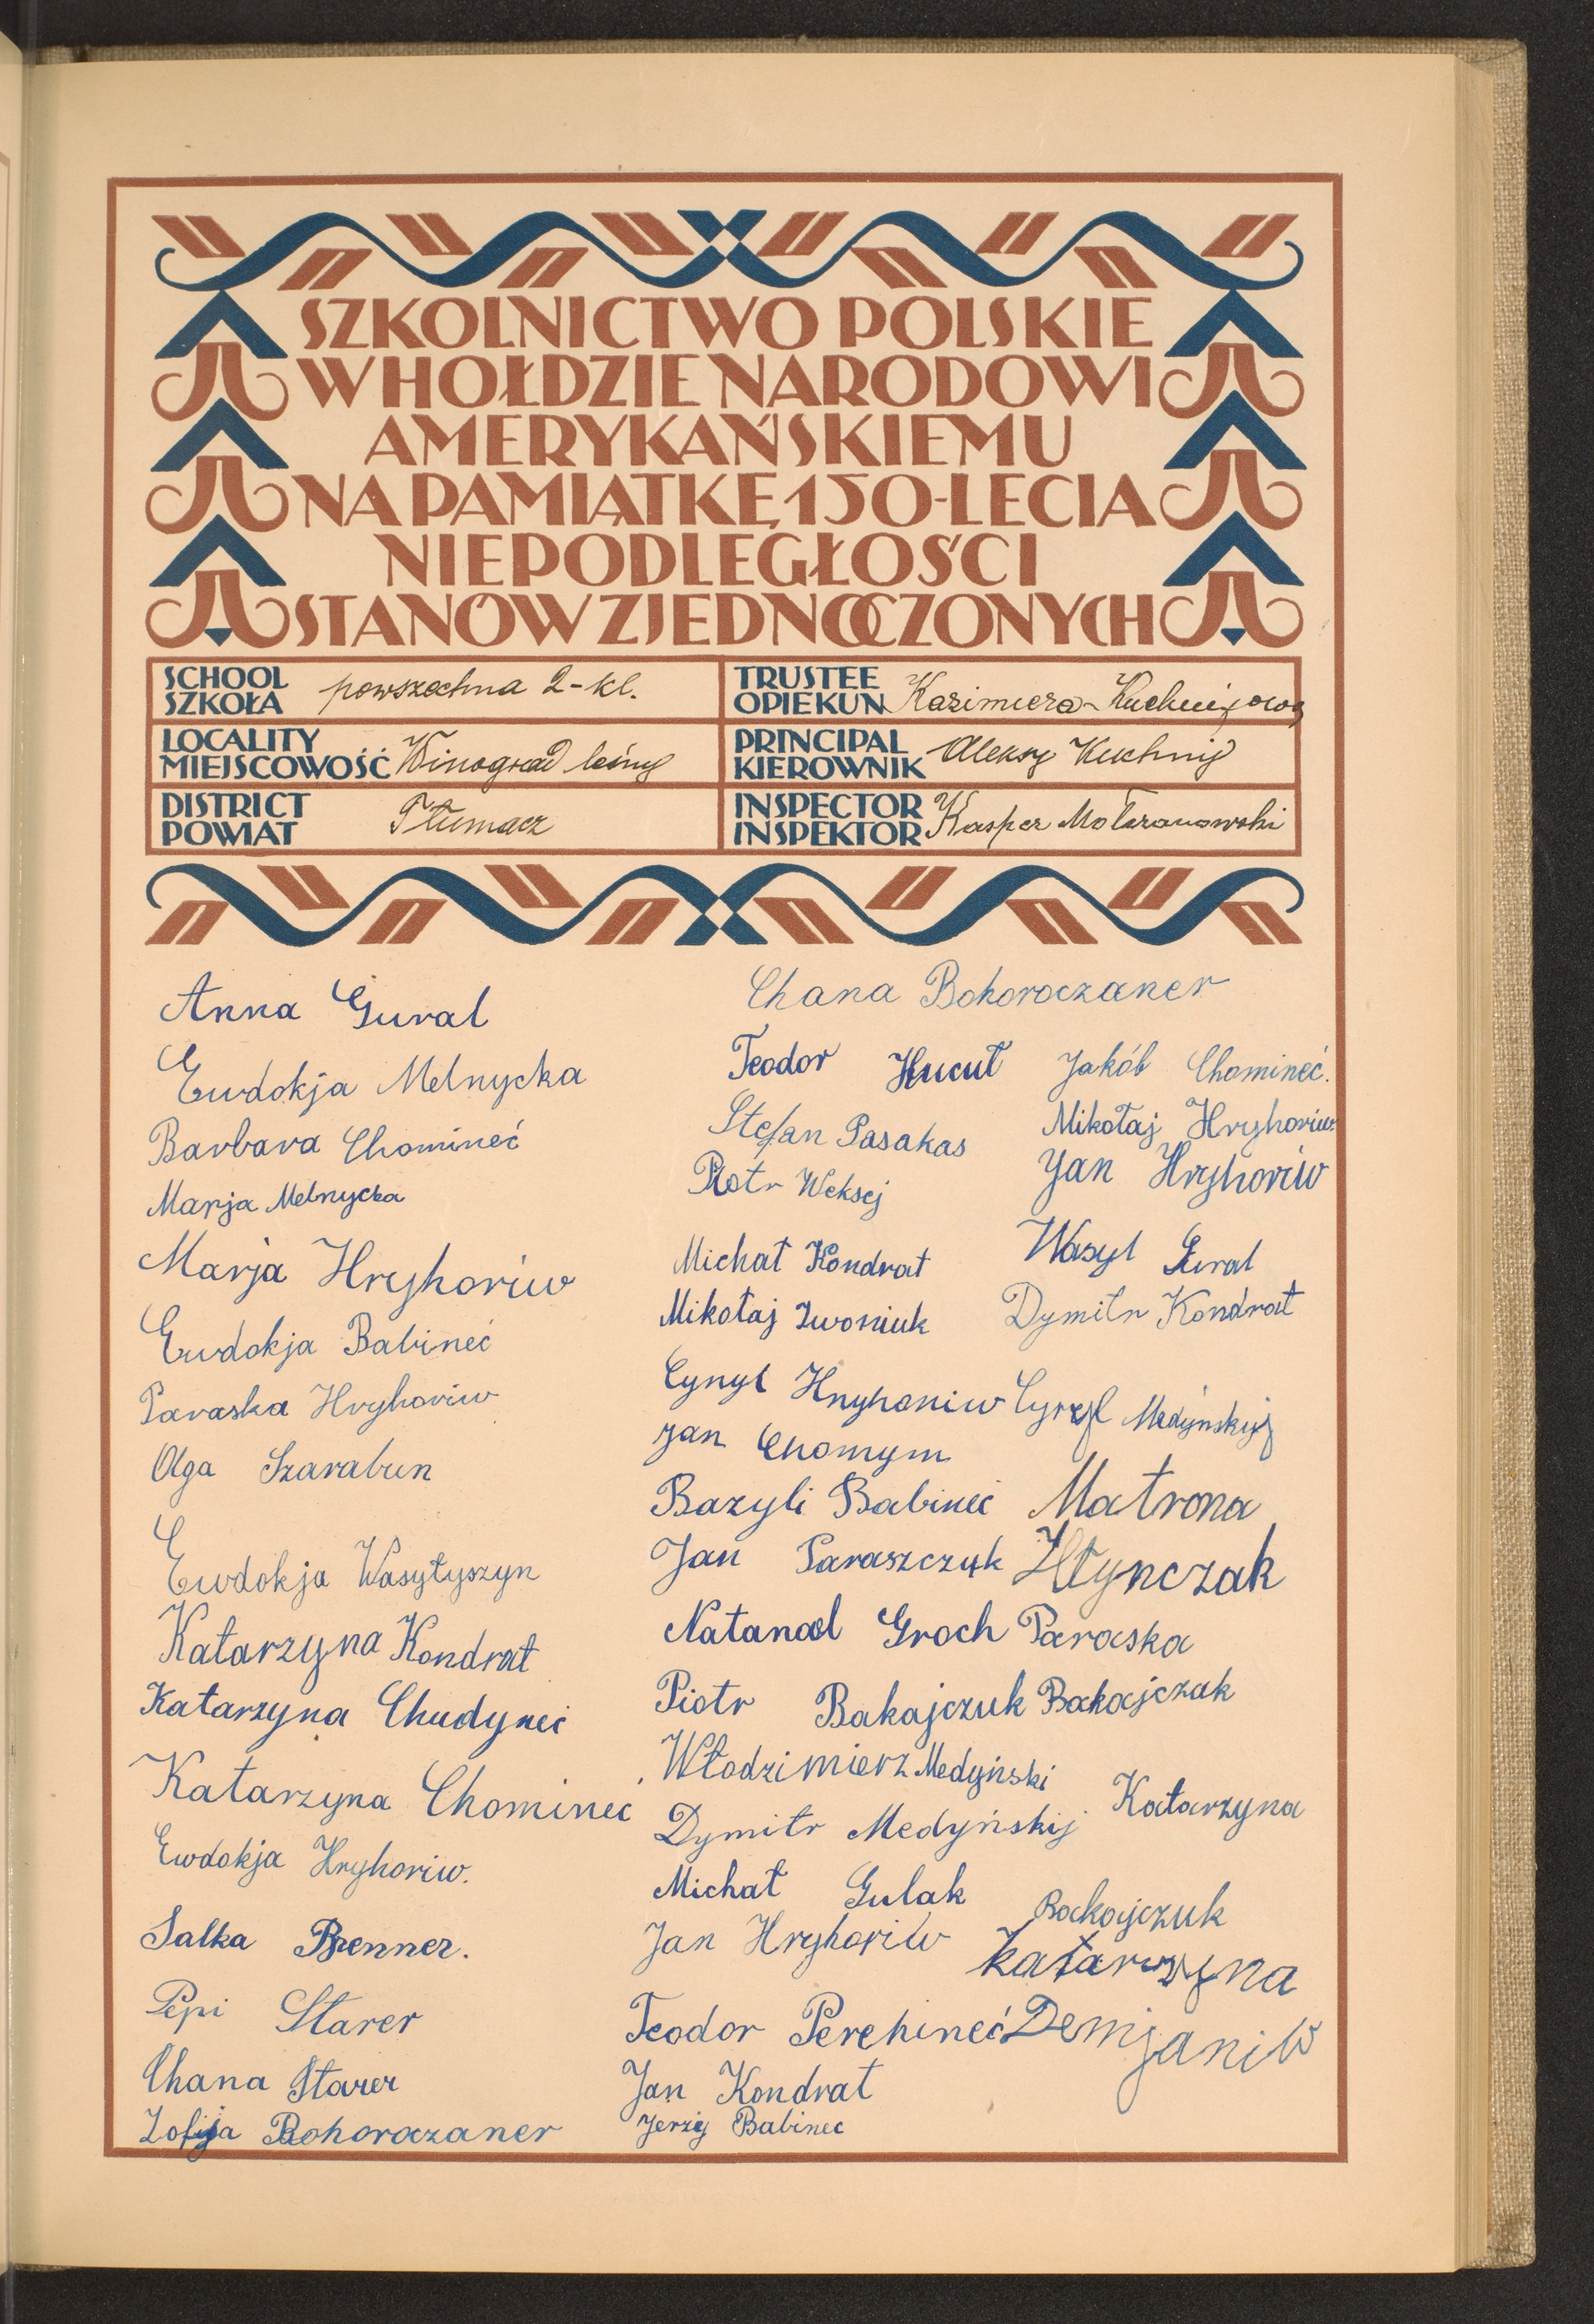 SZKOLNICTWO POLSKIE
W HOŁDZIE NARODOWI
AMERYKAŃSKIEMU
NA PAMIĄTKĘ 150-LECIA
NIEPODLEGŁOŚCI
STANÓW ZJEDNOCZONYCH
SCHOOL
SZKOŁA powszechna 2-kl.
TRUSTEE
OPIEKUN Kazimiera
LOCALITY
MIEJSCOWOŚĆ Winograd leśny
PRINCIPAL
KIEROWNIK Aleksy Kuchnij
DISTRICT
POWIAT Tłumacz
INSPECTOR
INSPEKTOR Kasper
Anna Gural
Ewdokja Melnycka
Barbara Chomineć
Marja Melnycka
Marja Hryhoriw
Ewdokja Babineć
Paraska Hryhoriw
Olga Szarabun
Ewdokja Wasyłyszyn
Katarzyna Kondrat
Katarzyna Chudyneć
Katarzyna Chomineć
Ewdokja Hryhoriw.
Salka Brenner.
Pepi Starer
Chana Starer
Zofija Bohoroczaner
Chana Bohoroczaner
Teodor Hucuł
Stefan Pasakas
Piotr Weksej
Michał Kondrat
Mikołaj Iwoniuk
Cyryl Hryhoriw
Jan Chomym
Bazyli Babineć
Jan Paraszczuk
Natanael Groch
Piotr Bakajczuk
Włodzimierz Medyński
Dymitr Medyńskij
Michał Gulak
Jan Hryhoriw
Teodor Perehineć
Jan Kondrat
Jerzy Babinec
Jakób Chomineć.
Mikołaj Hryhoriw
Jan Hryhoriw
Wasyl Gural
Dymitr Kondrat
Cyryl Medyńskyj
Matrona
Hłynczak
Paraska
Bakajczak
Katarzyna
Bakajczuk
Katarzyna
Demjaniw